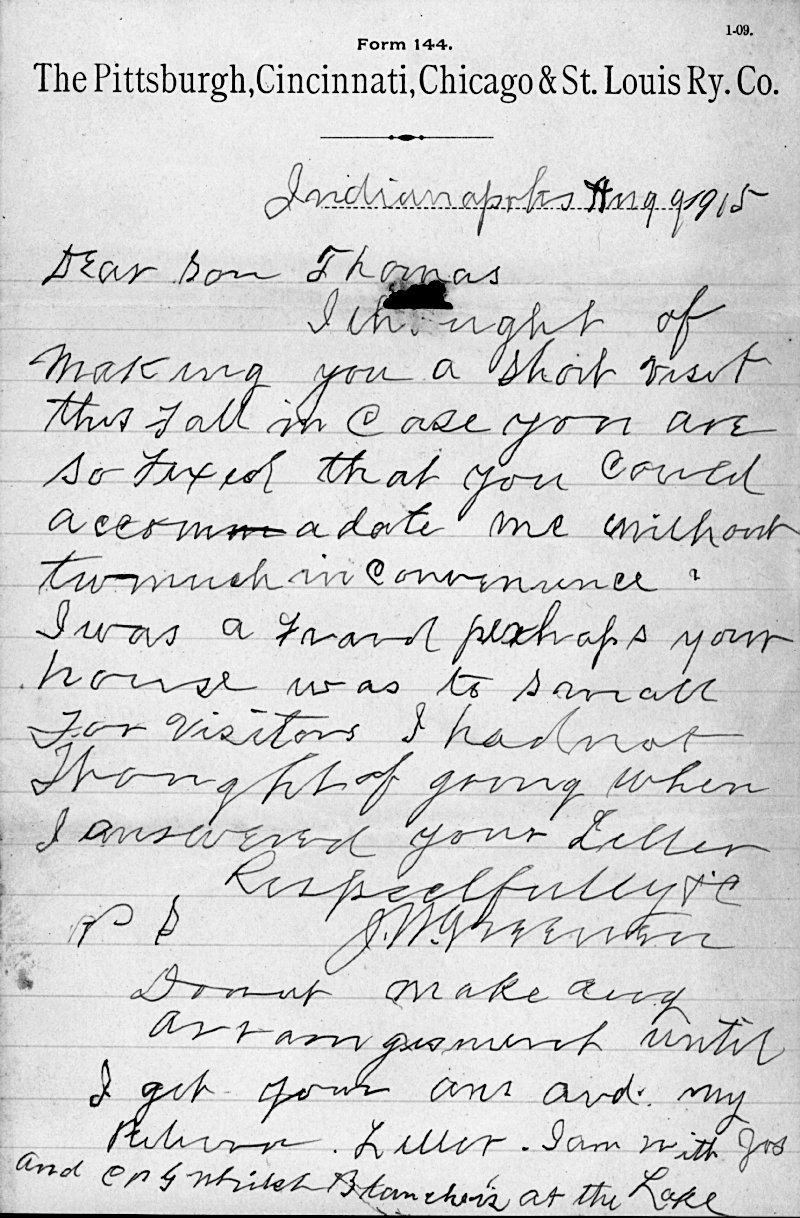 1-09.
Form 144.
The Pittsburgh, Cincinnati, Chicago & St. Louis Ry. Co.
Indianapolis Aug 9 1915
Dear Son Thomas
I thought of
making you a short visit
this Fall in Case you are
so Fixed that you Could
accomadate me without
two much in Convenience
I was a Fraid perhaps your
house was to small
For visitors I had not
Thought of going when
I answered your Letter
Respectfully &C
P S J. W. Greenen
Do not make any
arrangesment until
I get your ans and my
Return Letter. I am with Jos
and C A G whilst Blanche is at the Lake